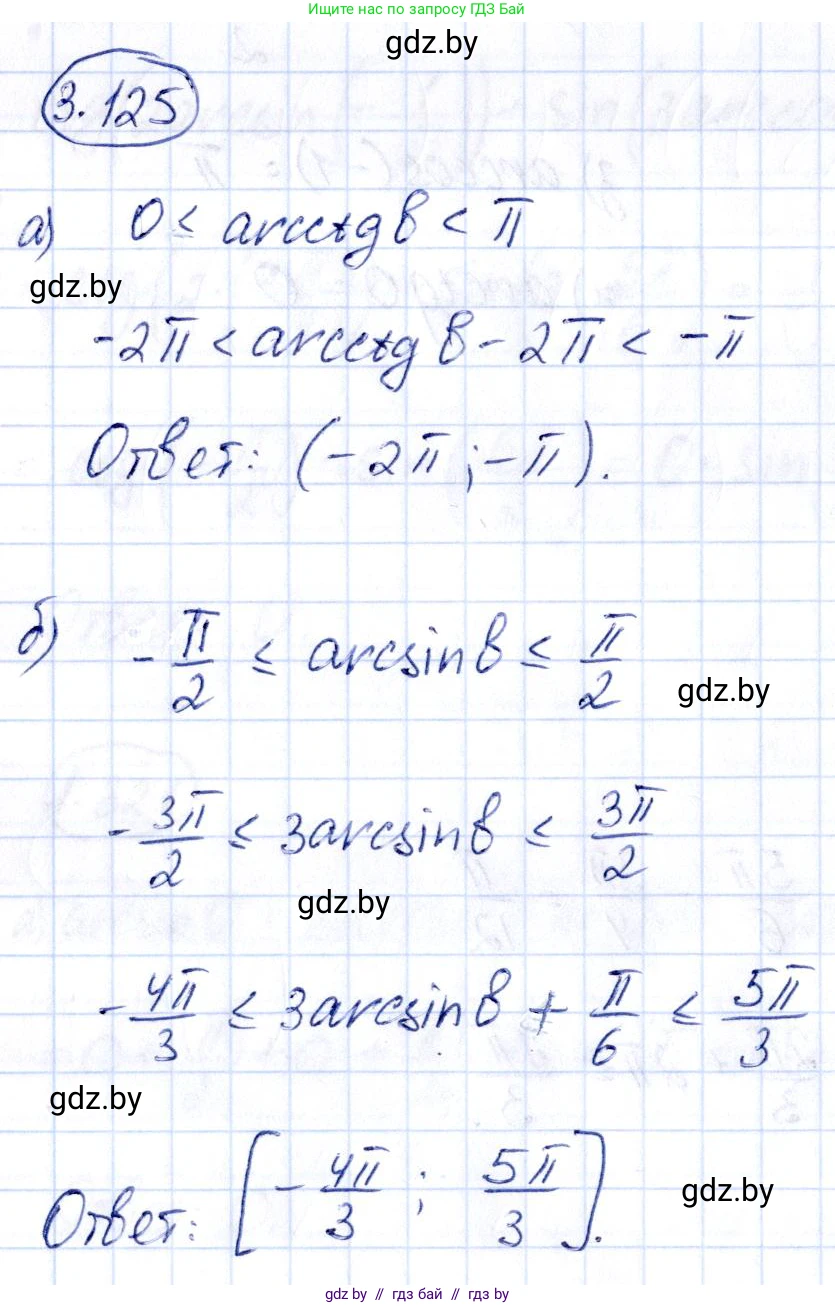 Ищите нас по запросу ГДЗ Бай
gdz.by
3.125
а) 0 ≤ arcctg b < π
gdz.by
-2π < arcctg b - 2π < -π
Ответ: (-2π; -π).
б) -π/2 ≤ arcsin b ≤ π/2
gdz.by
-3π/2 ≤ 3arcsin b ≤ 3π/2
gdz.by
-4π/3 ≤ 3arcsin b + π/6 ≤ 5π/3
gdz.by
Ответ: [-4π/3; 5π/3].
gdz.by
gdz.by // гдз бай // gdz.by